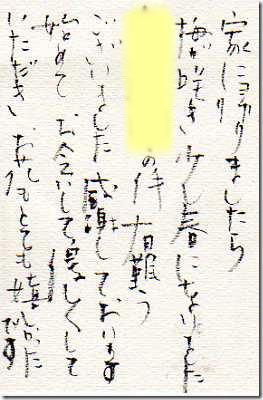 家に帰りましたら
梅が咲き少し春になりました
の件 有難う
ございました 感謝しております
始めて お会いして 優しくして
いただき お礼 とても嬉しかった
です